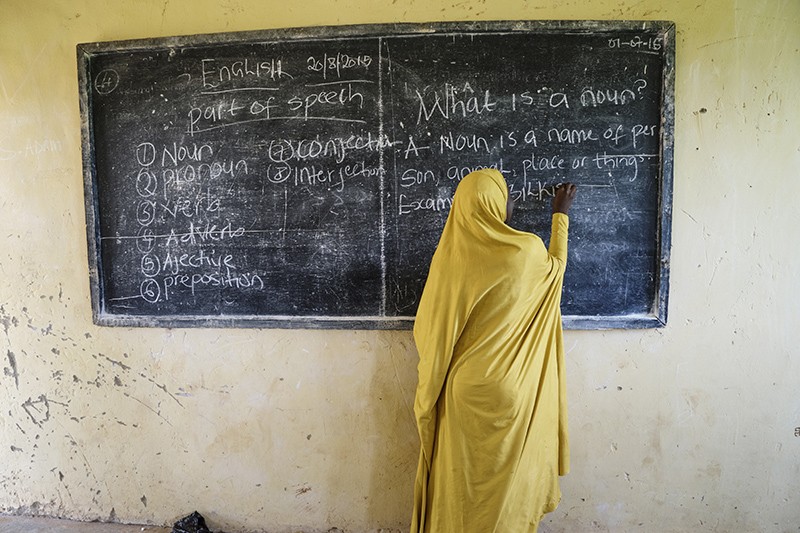 English 20/8/2015
part of speech
① Noun
② pronoun
③ verb
④ Adverb
⑤ Ajective
⑥ preposition
⑦ conjectio
⑧ Interjection
01-07-15
What is a noun?
A Noun is a name of per
son, animal, place or things
Exam